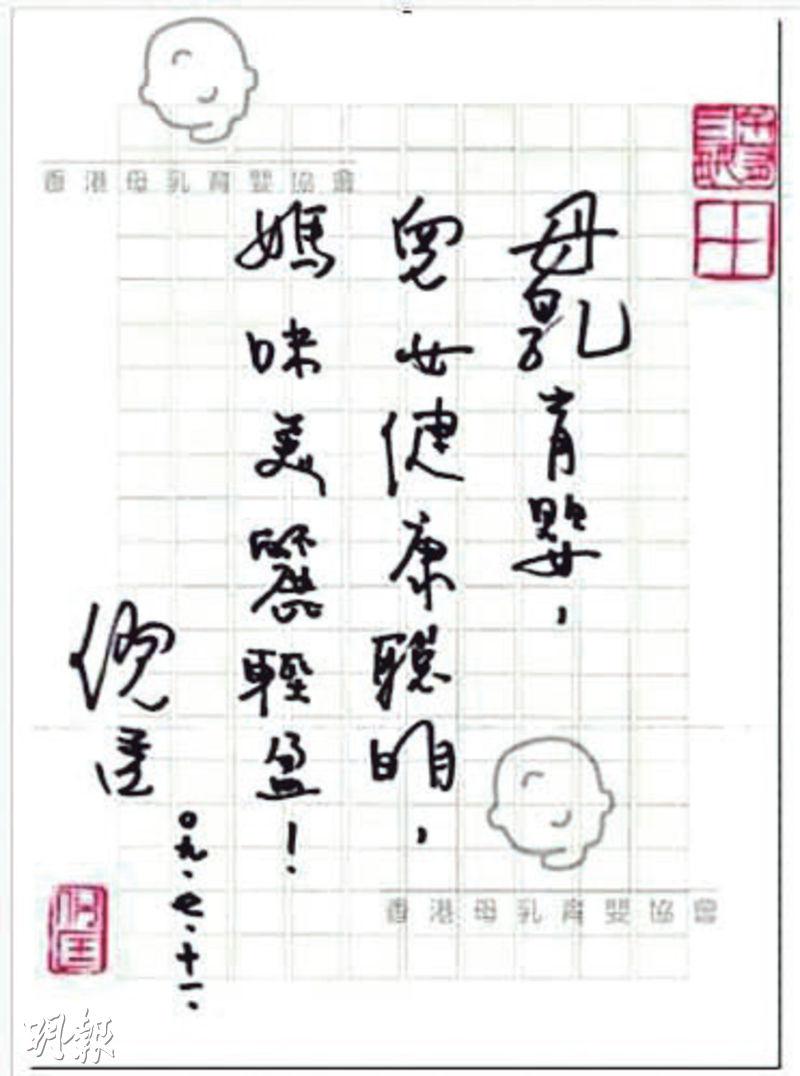 香港母乳育嬰協會
母乳育嬰，
兒女健康聰明，
媽咪美麗輕盈！
倪匡
〇九·七·十一·
香港母乳育嬰協會
明報